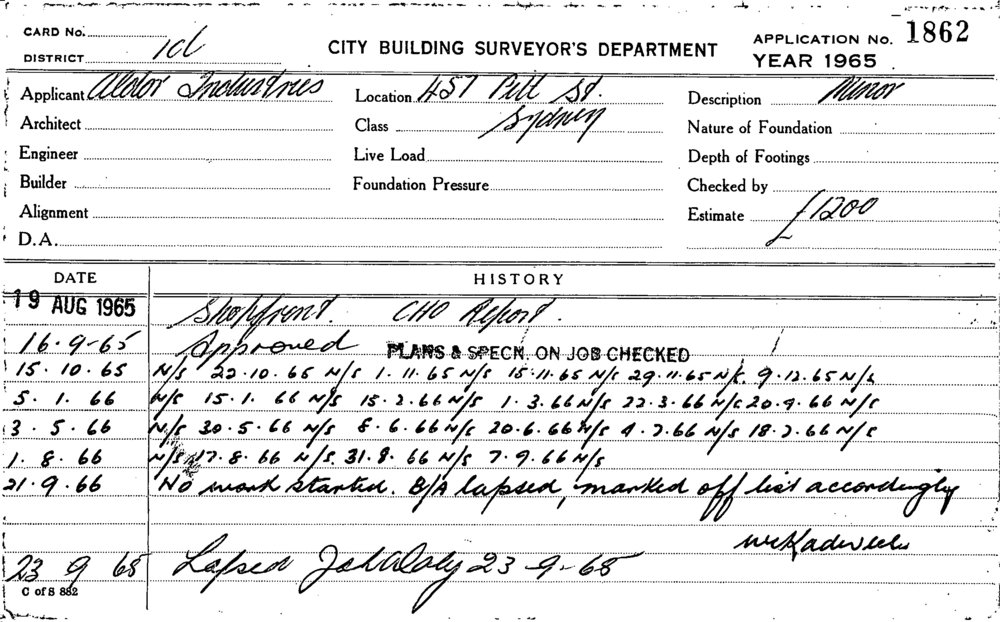 CARD No.
APPLICATION No. 1862
DISTRICT
CITY BUILDING SURVEYOR'S DEPARTMENT
YEAR 1965
Applicant Aldor Industries
Location 457 Pitt St.
Description Minor
Architect
Class Sydney
Nature of Foundation
Engineer
Live Load
Depth of Footings
Builder
Foundation Pressure
Checked by
Alignment
Estimate £1200
D.A.
DATE
HISTORY
19 AUG 1965 Shopfront. CHO Report.
16.9-65 Approved PLANS & SPECN. ON JOB CHECKED
15.10.65 N/S 22.10.65 N/S 1.11.65 N/S 15.11.65 N/S 29.11.65 N/S. 9.12.65 N/S
5.1.66 N/S 15.1.66 N/S 15.2.66 N/S 1.3.66 N/S 22.3.66 N/S 20.4.66 N/S
3.5.66 N/S 30.5.66 N/S 8.6.66 N/S 20.6.66 N/S 4.7.66 N/S 18.7.66 N/S
1.8.66 N/S 17.8.66 N/S. 31.8.66 N/S 7.9.66 N/S
21.9.66 No work started. B/A lapsed, marked off list accordingly
23 9 68 Lapsed 23-9-68
C of S 882